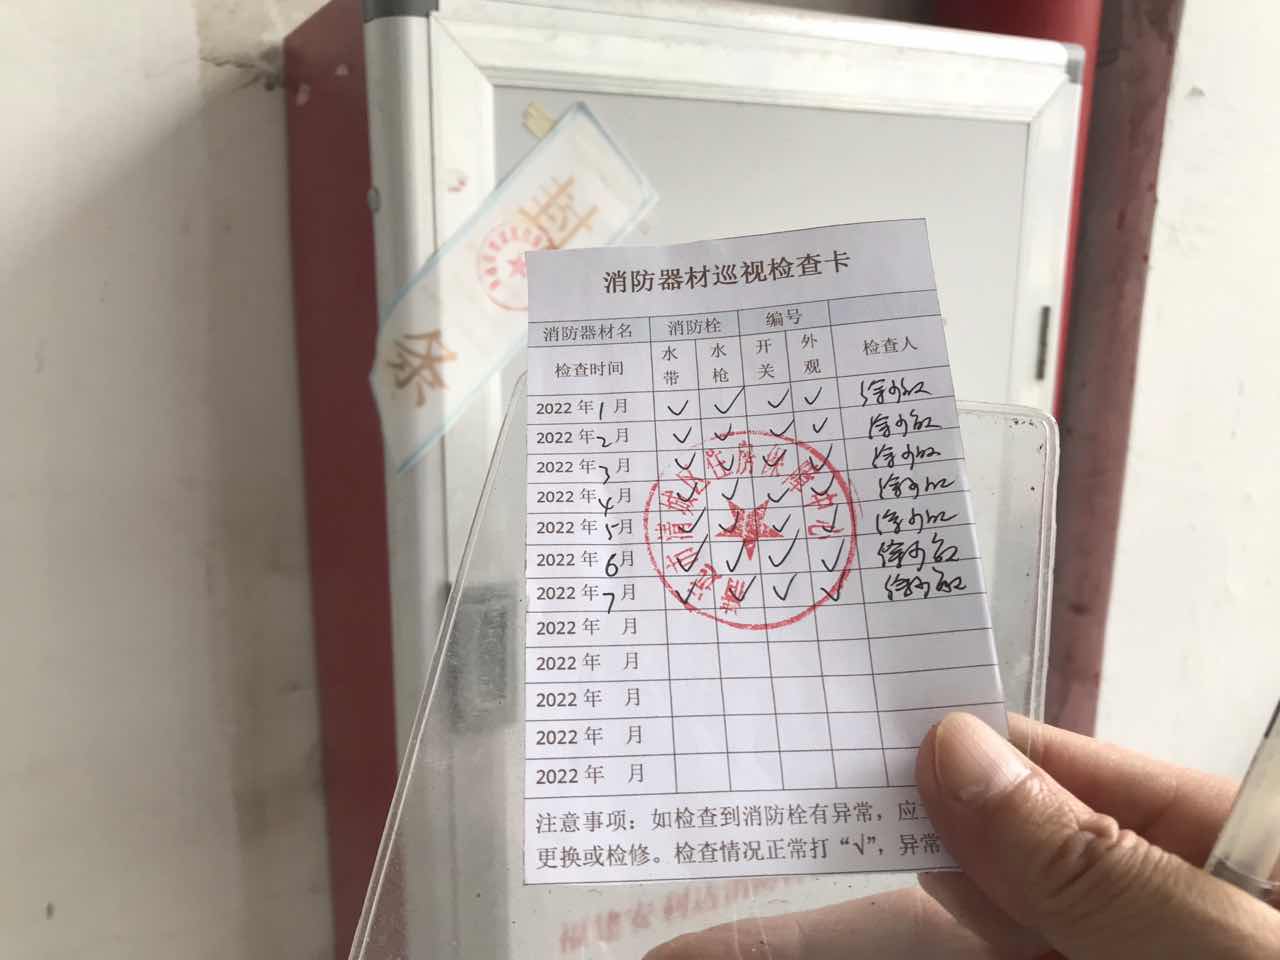 封
条
消防器材巡视检查卡
消防器材名 消防栓 编号
检查时间 水带 水枪 开关 外观 检查人
2022年1月 ✓ ✓ ✓ ✓
2022年2月 ✓ ✓ ✓ ✓
2022年3月 ✓ ✓ ✓ ✓
2022年4月 ✓ ✓ ✓ ✓
2022年5月 ✓ ✓ ✓ ✓
2022年6月 ✓ ✓ ✓ ✓
2022年7月 ✓ ✓ ✓ ✓
2022年 月
2022年 月
2022年 月
2022年 月
2022年 月
清城区住房保障中心
注意事项：如检查到消防栓有异常，应
更换或检修。检查情况正常打“√”，异常